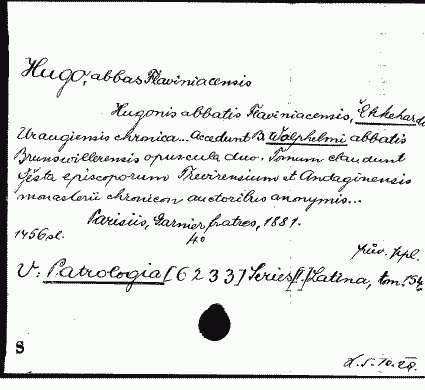 Hugo, abbas Flaviniacensis
Hugonis abbatis Flaviniacensis, Ekkehardi
Uraugiensis chronica... Accedunt B. Wolphelmi abbatis
Brunswillerensis opuscula duo. Tomum claudunt
Gesta episcoporum Trevirensium et Andaginensis
monasterii chronicon auctoribus anonymis...
Parisiis, Garnier fratres, 1881.
1456 sl. 4o
pův. ppl.
V: Patrologia [6233] Series [I.] Latina, tom. 154.
S